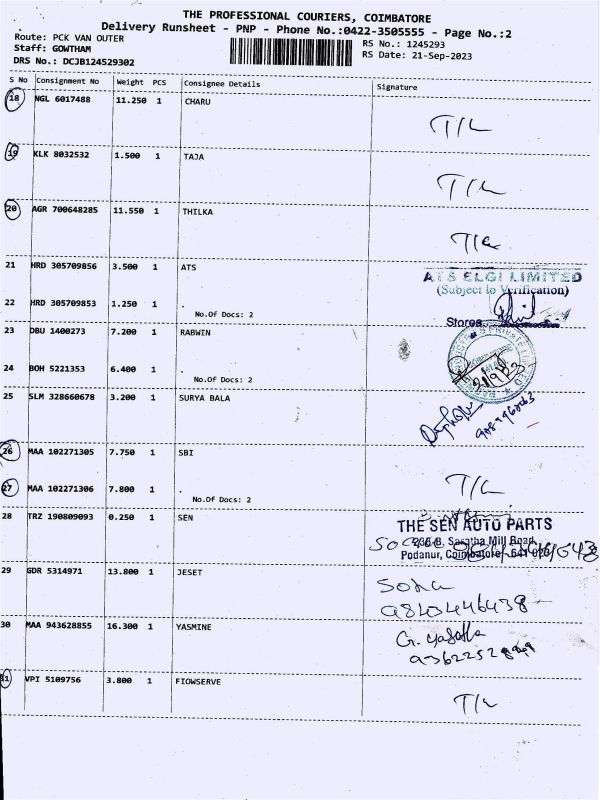 THE PROFESSIONAL COURIERS, COIMBATORE
Delivery Runsheet - PNP - Phone No.:0422-3505555 - Page No.:2
Route: PCK VAN OUTER
RS No.: 1245293
Staff: GOWTHAM
RS Date: 21-Sep-2023
DRS No.: DCJB124529302
S No Consignment No Weight PCS Consignee Details Signature
18 NGL 6017488 11.250 1 CHARU
T/L
19 KLK 8032532 1.500 1 TAJA
T/L
20 AGR 700648285 11.550 1 THILKA
T/L
21 HRD 305709856 3.500 1 ATS
ATS ELGI LIMITED
(Subject to Verification)
22 HRD 305709853 1.250 1 .
No.Of Docs: 2
Stores
23 DBU 1400273 7.200 1 RABWIN
24 BOH 5221353 6.400 1 .
No.Of Docs: 2
21/9/23
25 SLM 328660678 3.200 1 SURYA BALA
26 MAA 102271305 7.750 1 SBI
T/L
27 MAA 102271306 7.800 1 .
No.Of Docs: 2
28 TRZ 190809093 0.250 1 SEN
THE SEN AUTO PARTS
Saratha Mill Road,
Podanur, Coimbatore - 641 023
29 GDR 5314971 13.800 1 JESET
30 MAA 943628855 16.300 1 YASMINE
31 VPI 5109756 3.800 1 FIOWSERVE
T/L